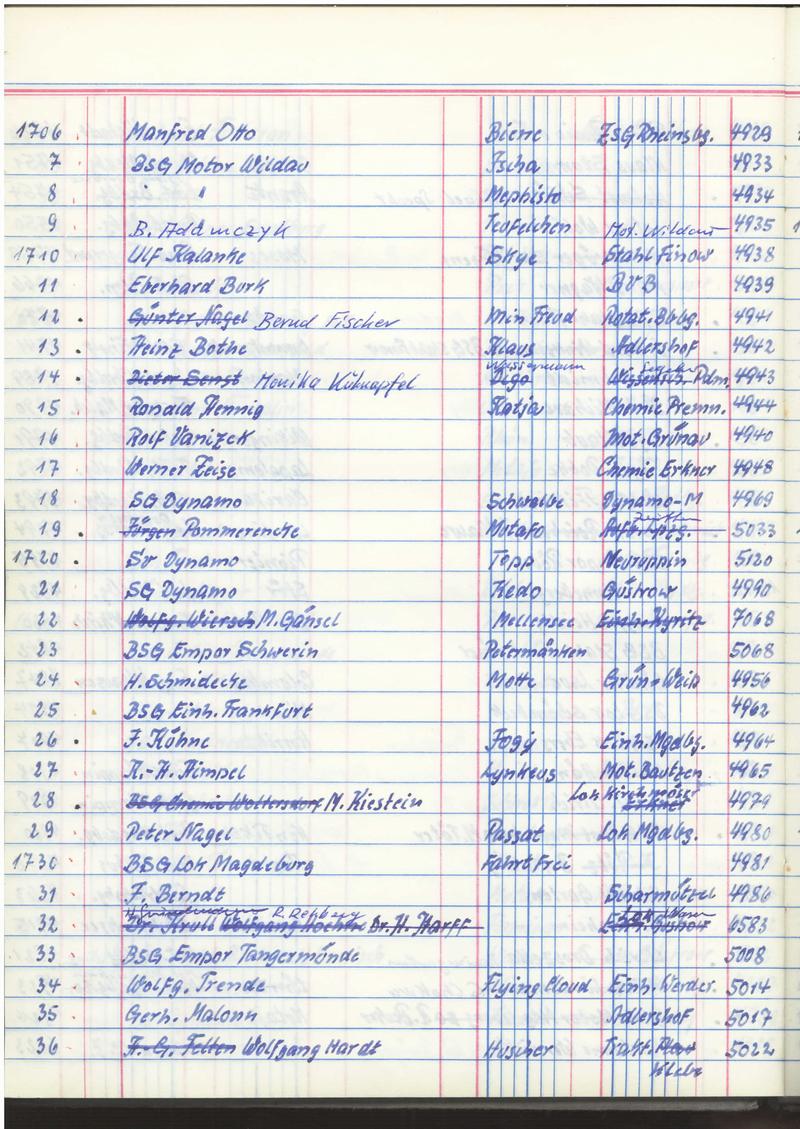 1706 Manfred Otto Biene ZSG Rheinsbg. 4929
7 BSG Motor Wildau Ischa 4933
8 " " Mephisto 4934
9 B. Adamczyk Teufelchen Mot. Wildau 4935
1710 Ulf Kalanke Skye Stahl Finow 4938
11 Eberhard Burk BVB 4939
12 Günter Nagel Bernd Fischer Min Freud Rotat. Bbbg. 4941
13 Heinz Bothe Klaus Adlershof 4942
Wassermann
14 Dieter Senst Monika Kühnapfel Digo Wissensch. Pdm. 4943
15 Ronald Hennig Katja Chemie Premn. 4944
16 Rolf Vanizek Mot. Grünau 4940
17 Werner Zeise Chemie Erkner 4948
18 SG Dynamo Schwalbe Dynamo-M 4969
Zeuthen
19 Jürgen Pommerencke Mutafo 5033
1720 SV Dynamo Topp Neuruppin 5120
21 SG Dynamo Kedo Güstrow 4990
22 Wolfg. Wiersch M. Gänsel Mellensee Einh. Kyritz 7068
23 BSG Empor Schwerin Petermänken 5068
24 H. Schmidecke Motte Grün-Weiß 4956
25 BSG Einh. Frankfurt 4962
26 F. Kühne Foggy Einh. Mgdbg. 4964
27 K.-H. Himpel Lynkeus Mot. Bautzen 4965
28 BSG Chemie Woltersdorf M. Kiestein Lok Kirchmöser Erkner 4979
29 Peter Nagel Passat Lok Mgdbg. 4980
1730 BSG Lok Magdeburg Fahrt Frei 4981
31 F. Berndt Scharmützel 4986
R. Rehberg Lok
32 Dr. Krull Wolfgang Dr. H. Harff Einh. 6583
33 BSG Empor Tangermünde 5008
34 Wolfg. Trende Flying Cloud Einh. Werder. 5014
35 Gerh. Malonn Adlershof 5017
36 H.-G. Felten Wolfgang Hardt Husiher Trakt. 5022